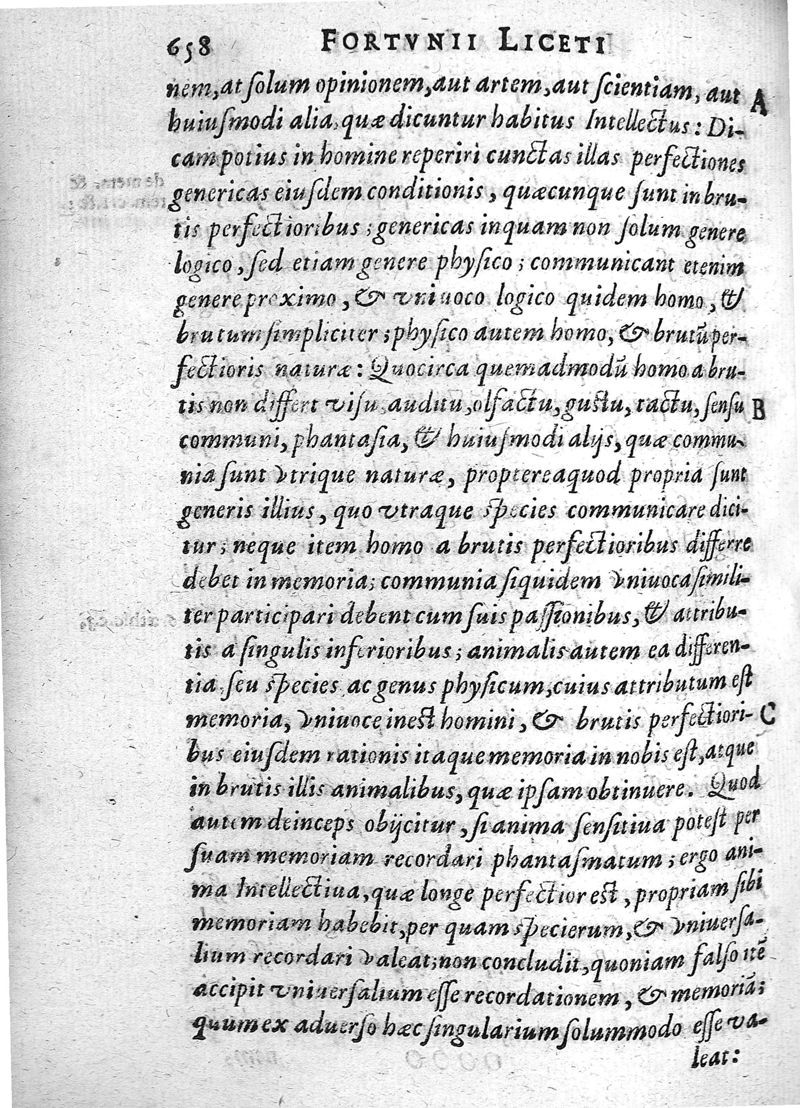 658 FORTVNII LICETI
nem, at ſolum opinionem, aut artem, aut ſcientiam, aut A
huiuſmodi alia, quæ dicuntur habitus Intellectus: Di-
cam potius in homine reperiri cunctas illas perfectiones
genericas eiuſdem conditionis, quæcunque ſunt in bru-
tis perfectioribus; genericas inquam non ſolum genere
logico, ſed etiam genere phyſico; communicant etenim
genere proximo, & vniuoco logico quidem homo, &
brutum ſimpliciter; phyſico autem homo, & brutū per-
fectioris naturæ: Quocirca quemadmodū homo a bru-
tis non differt viſu, auditu, olfactu, guſtu, tactu, ſenſu B
communi, phantaſia, & huiuſmodi alijs, quæ commu-
nia ſunt vtrique naturæ, proptereaquod propria ſunt
generis illius, quo vtraque ſpecies communicare dici-
tur; neque item homo a brutis perfectioribus differre
debet in memoria; communia ſiquidem vniuoca ſimili-
ter participari debent cum ſuis paſſionibus, & attribu-
tis a ſingulis inferioribus; animalis autem ea differen-
tia ſeu ſpecies ac genus phyſicum, cuius attributum eſt
memoria, vniuoce ineſt homini, & brutis perfectiori- C
bus eiuſdem rationis itaque memoria in nobis eſt, atque
in brutis illis animalibus, quæ ipſam obtinuere. Quod
autem deinceps obijcitur, ſi anima ſenſitiua poteſt per
ſuam memoriam recordari phantaſmatum; ergo ani-
ma Intellectiua, quæ longe perfectior eſt, propriam ſibi
memoriam habebit, per quam ſpecierum, & vniuerſa-
lium recordari valeat; non concludit, quoniam falſo itē
accipit vniuerſalium eſſe recordationem, & memoriā;
quum ex aduerſo hæc ſingularium ſolummodo eſſe va-
leat: